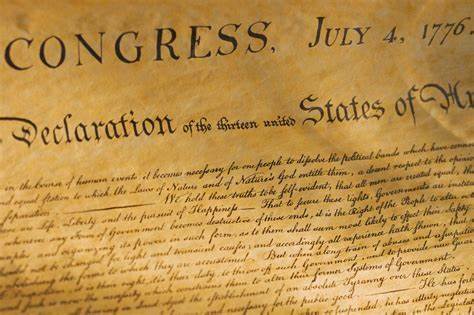 CONGRESS, JULY 4, 1776.
Declaration of the thirteen united States of
in the Course of human events it becomes necessary for one people to dissolve the political bands which have
equal station to which the Laws of Nature and of Nature's God entitle them, a decent respect to the
separation. We hold these truths to be self-evident, that all men are created equal, that
Life, Liberty and the pursuit of Happiness — That to secure these rights Governments are
any Form of Government becomes destructive of these ends, it is the Right of the People to alter
and organizing its powers in such form, as to them shall seem most likely to effect their
light and transient causes; and accordingly all experience hath shewn, that
the forms to which they are accustomed. But when a long train of abuses and usurpations
it is their duty, to throw off such Government, and to provide new
necessity which constrains them to alter their former Systems of Government.
the establishment of an absolute Tyranny over these States.
for the public good. He has